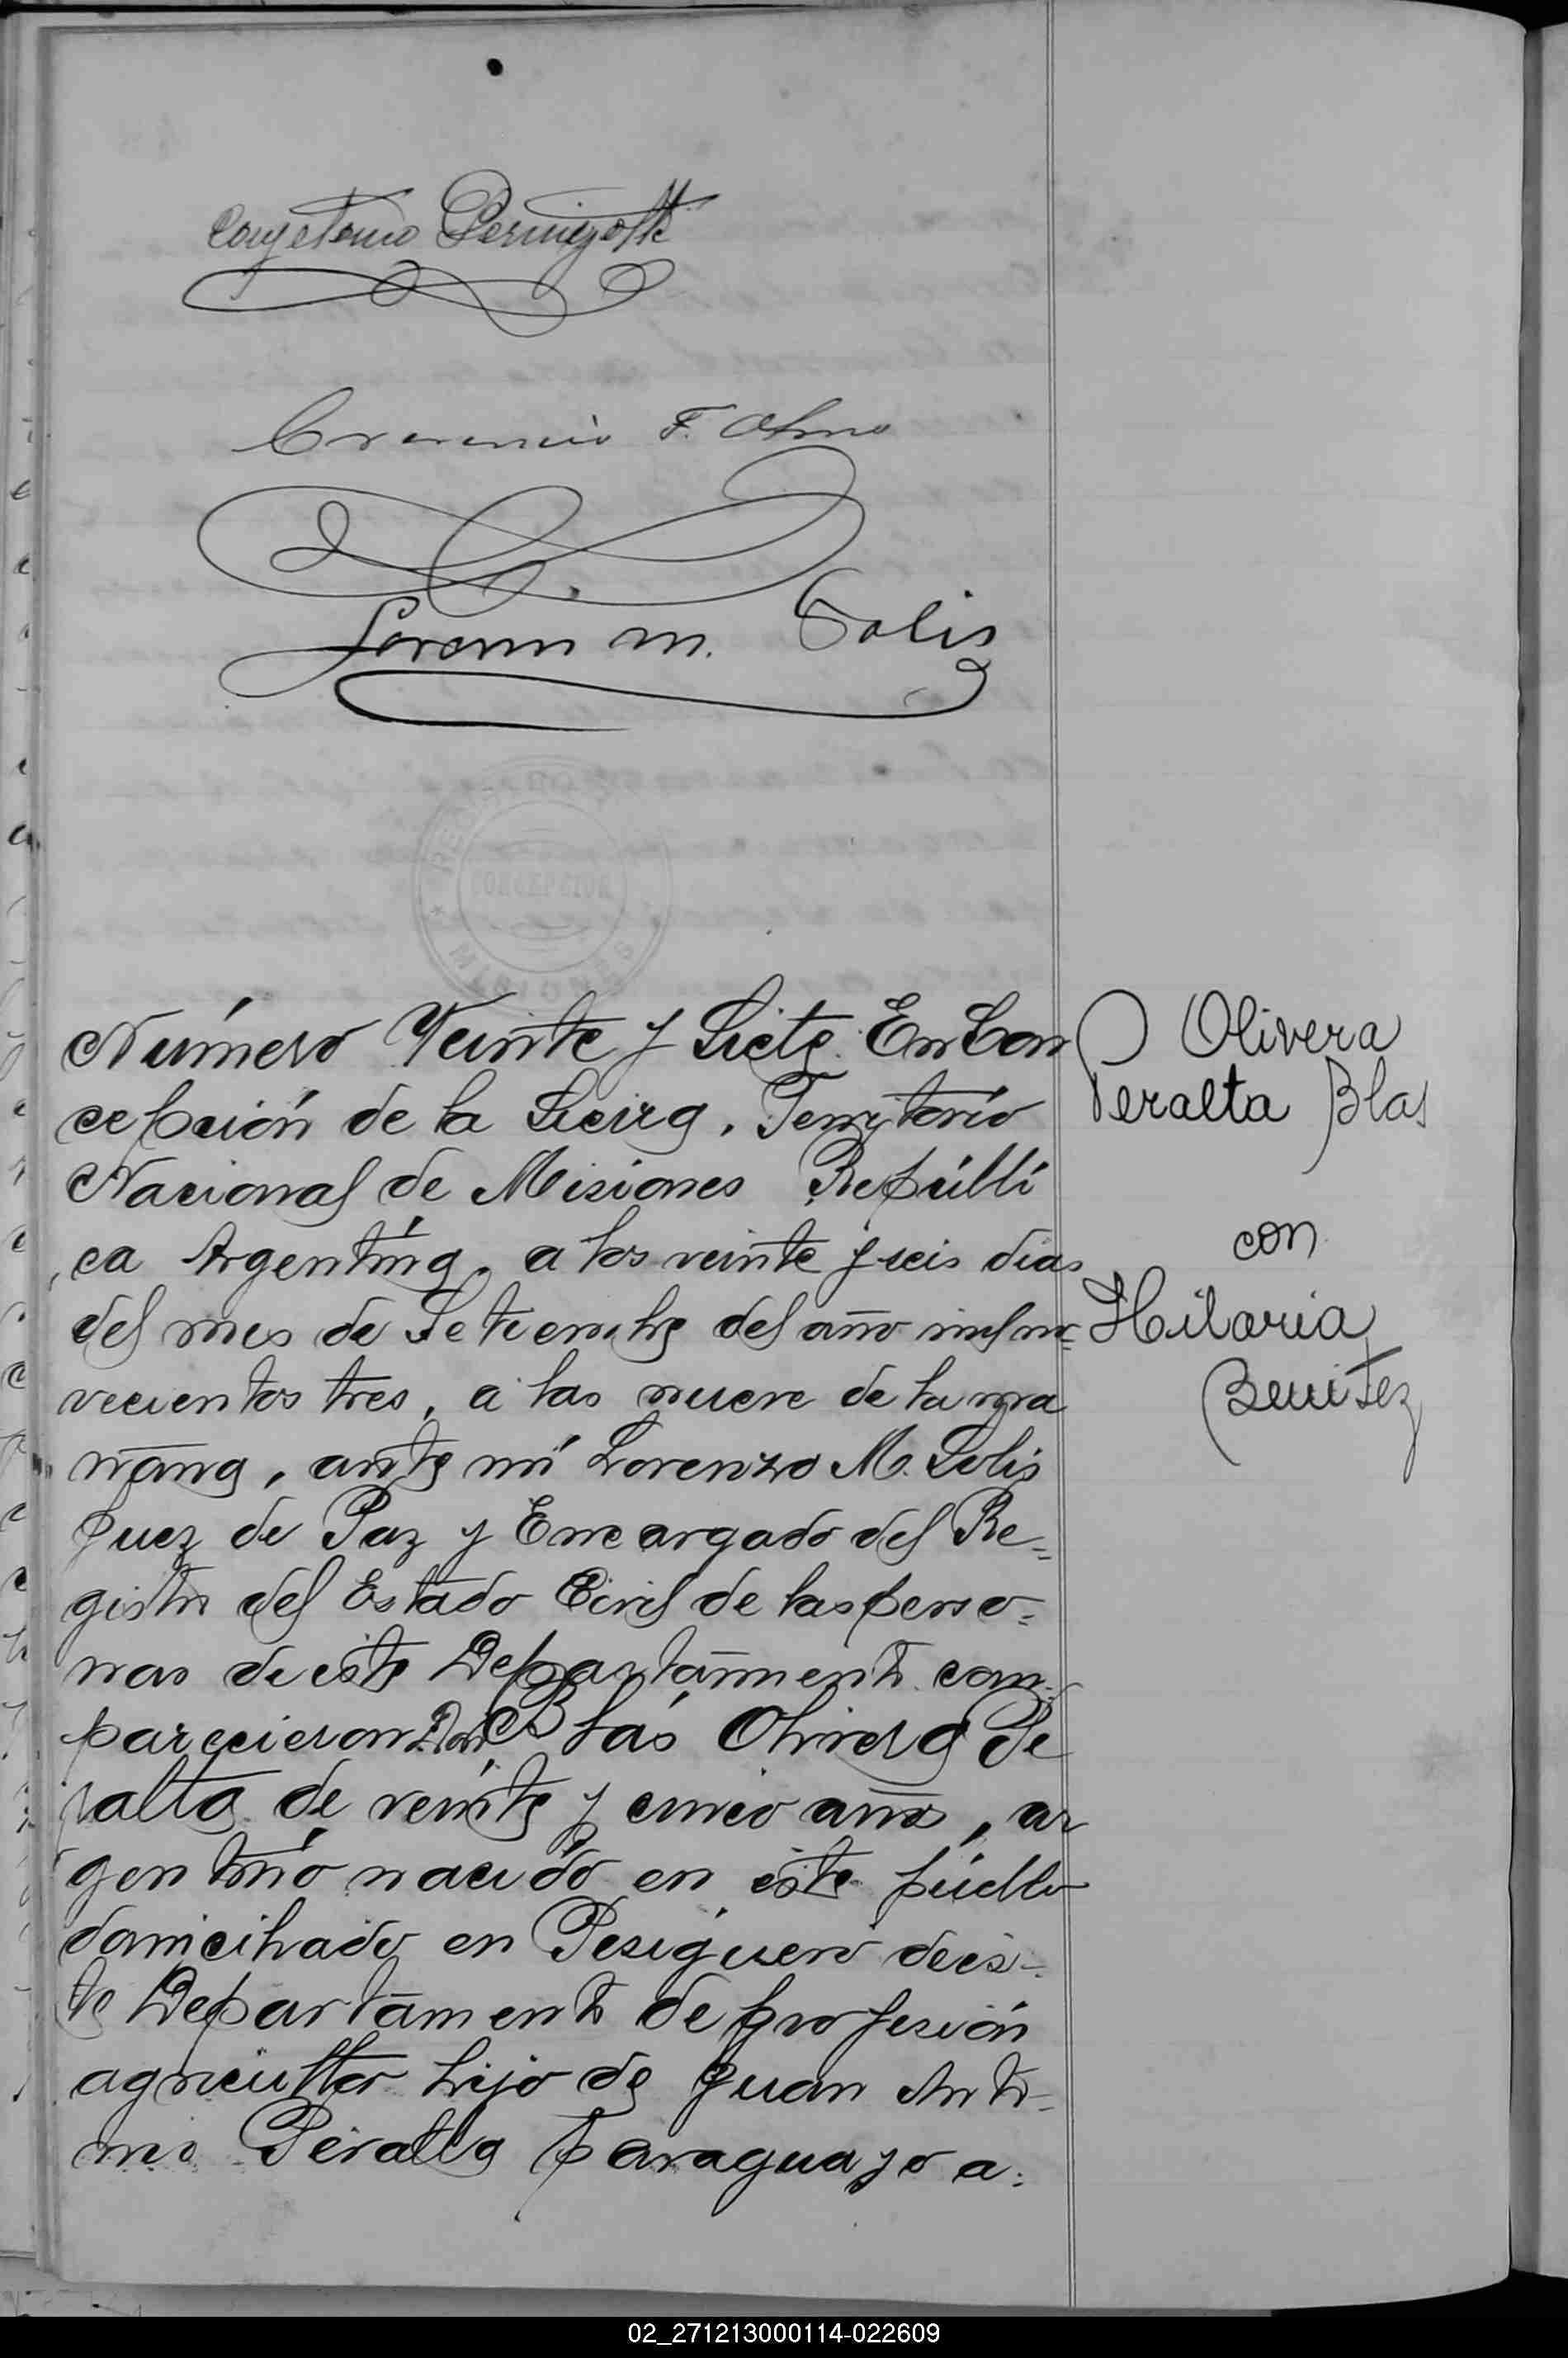 Cayetano Pernigotti
F. Olmo
Lorenzo M. Solis
CONCEPCION
MISIONES
Número Veinte y Siete. En Con
cepción de la Sierra, Territorio
Nacional de Misiones Repúbli
ca Argentina, a los veinte y seis dias
del mes de Setiembre del año mil no=
vecientos tres, a las nueve de la ma
ñana, ante mí Lorenzo M. Solis
Juez de Paz y Encargado del Re=
gistro del Estado Civil de las perso=
nas de este Departamento com=
parecieron Don Blás Olivera Pe
ralta de veinte y cinco años, ar
gentino nacido en este pueblo
domiciliado en Pesiguero de es=
te Departamento de profesión
agricultor hijo de Juan Anto=
nio Peralta paraguayo a=
Olivera
Peralta Blas
con
Hilaria
Benitez
02_271213000114-022609